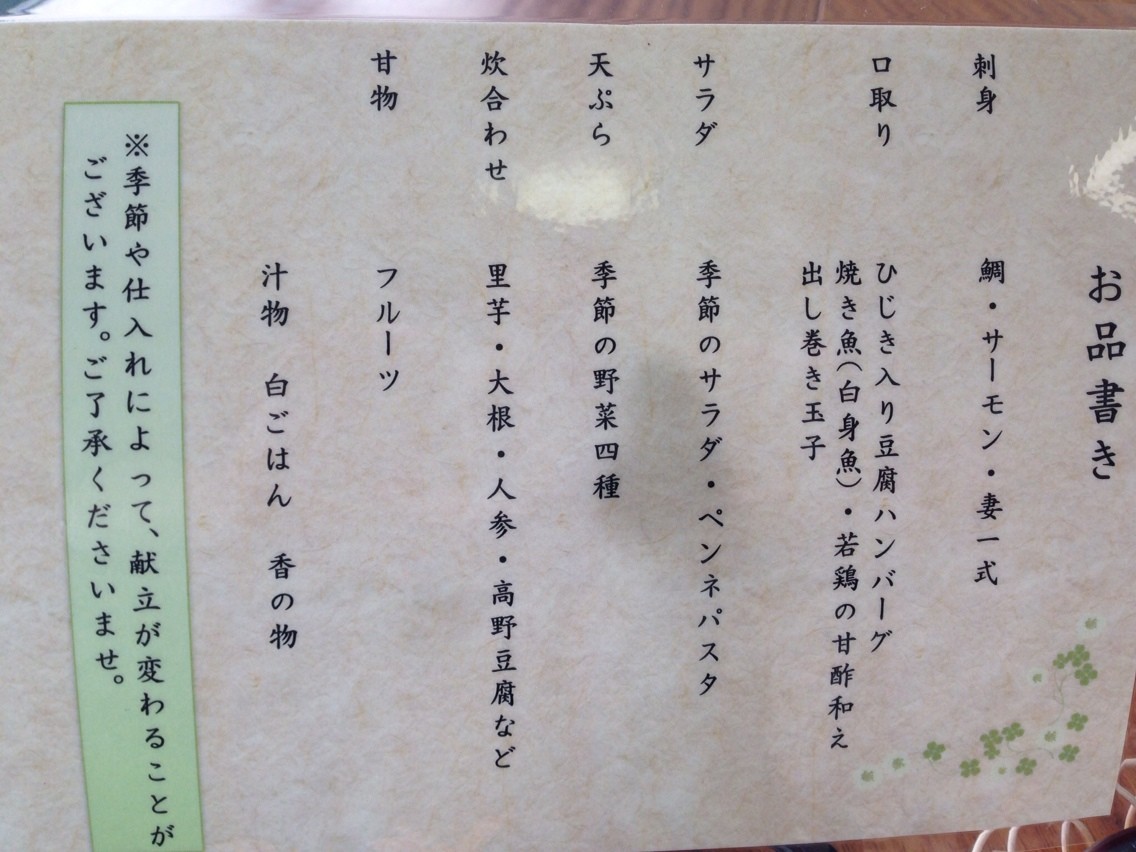 お品書き
刺身　鯛・サーモン・妻一式
口取り　ひじき入り豆腐ハンバーグ
焼き魚(白身魚)・若鶏の甘酢和え
出し巻き玉子
サラダ　季節のサラダ・ペンネパスタ
天ぷら　季節の野菜四種
炊合わせ　里芋・大根・人参・高野豆腐など
甘物　フルーツ
汁物　白ごはん　香の物
※季節や仕入れによって、献立が変わることが
ございます。ご了承くださいませ。